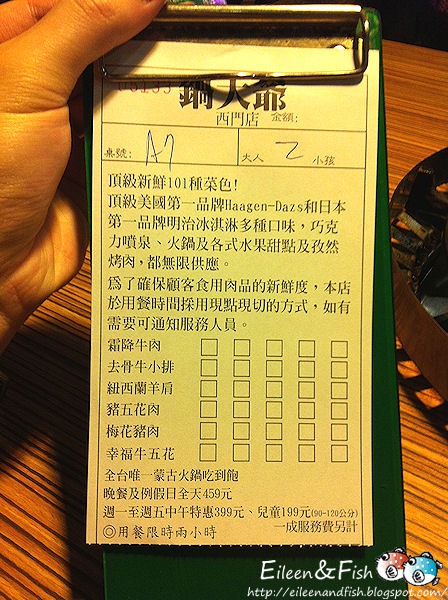 鍋大爺
西門店 金額:
桌號: A7 大人 2 小孩
頂級新鮮101種菜色!
頂級美國第一品牌Haagen-Dazs和日本
第一品牌明治冰淇淋多種口味，巧克
力噴泉、火鍋及各式水果甜點及孜然
烤肉，都無限供應。
為了確保顧客食用肉品的新鮮度，本店
於用餐時間採用現點現切的方式，如有
需要可通知服務人員。
霜降牛肉
去骨牛小排
紐西蘭羊肩
豬五花肉
梅花豬肉
幸福牛五花
全台唯一蒙古火鍋吃到飽
晚餐及例假日全天459元
週一至週五中午特惠399元、兒童199元(90-120公分)
◎用餐限時兩小時 一成服務費另計
Eileen&Fish
http://eileenandfish.blogspot.com/